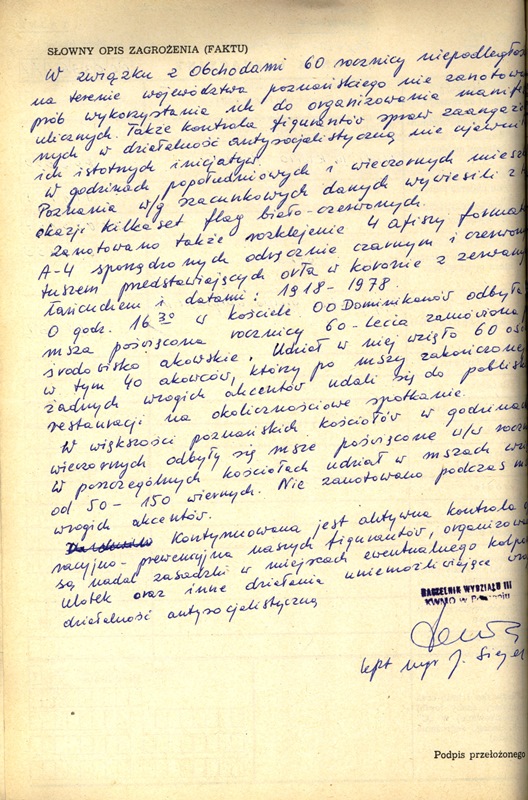 SŁOWNY OPIS ZAGROŻENIA (FAKTU)
W związku z Obchodami 60 rocznicy niepodległoś
na terenie województwa poznańskiego nie zanotowa
prób wykorzystania ich do organizowania manife
ulicznych. Także kontrola figurantów spraw zaangażo
nych w działalność antysocjalistyczną nie ujawni
ich istotnych inicjatyw
W godzinach popołudniowych i wieczornych miesz
Poznania w/g szacunkowych danych wywiesili z
okazji kilkaset flag biało-czerwonych.
Zanotowano także rozklejenie 4 afiszy formatu
A-4 sporządzonych odręcznie czarnym i czerwony
tuszem przedstawiających orła w koronie z zerwany
łańcuchem i datami: 1918-1978.
O godz. 16 30 w kościele OO Dominikanów odbyła
msza poświęcona rocznicy 60-lecia zamówiona
środowisko akowskie. Udział w niej wzięło 60 osó
w tym 40 akowców, którzy po mszy zakończonej
żadnych wrogich akcentów udali się do poblisk
restauracji na okolicznościowe spotkanie.
W większości poznańskich kościołów w godzinach
wieczornych odbyły się msze poświęcone w/w roczn
W poszczególnych kościołach udział w mszach wzi
od 50-150 wiernych. Nie zanotowano podczas m
wrogich akcentów.
Kontynuowana jest aktywna kontrola o
racyjno-prewencyjna naszych figurantów, organizowa
są nadal zasadzki w miejscach ewentualnego kolpo
ulotek oraz inne działania uniemożliwiające wro
działalność antysocjalistyczną
NACZELNIK WYDZIAŁU III
KWMO w Poznaniu
Podpis przełożonego